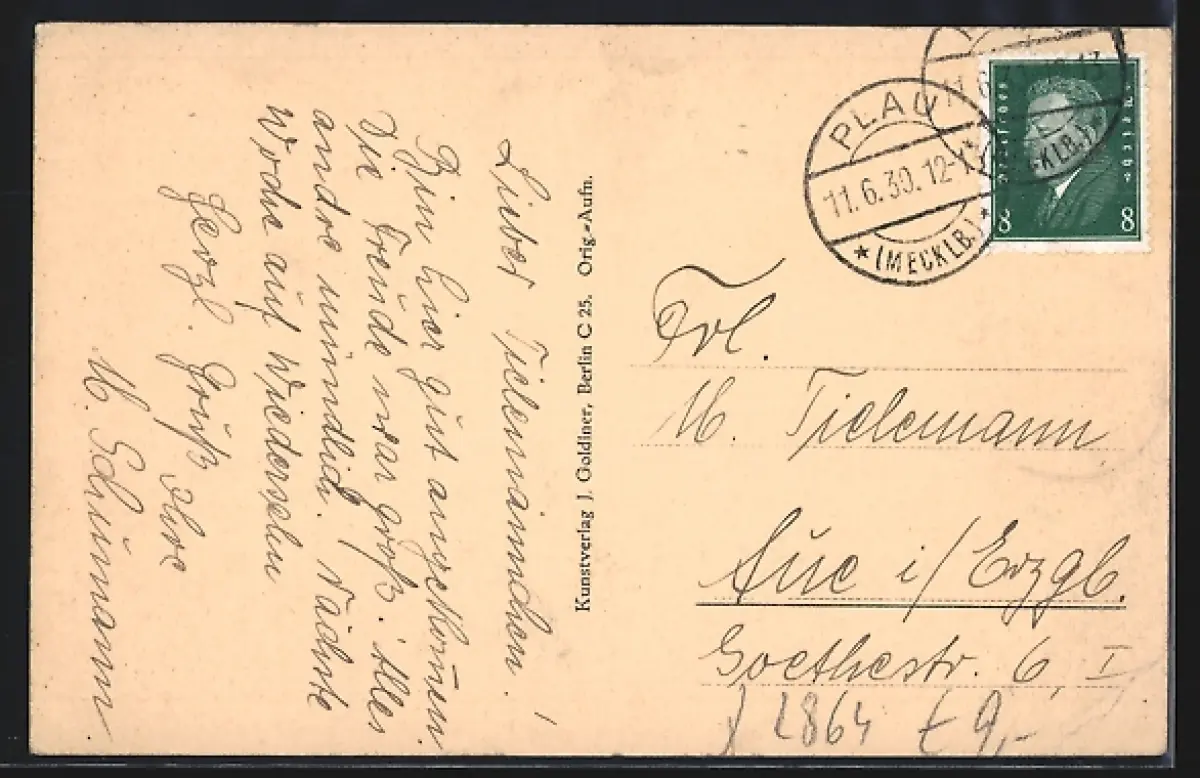 Lieber Tielemännchen!
Bin hier gut angekommen.
Die Freude war groß. Alles
andre mündlich. Nächste
Woche auf Wiedersehn
Herzl. Gruß Ihre
M. Schümann
Kunstverlag J. Goldiner, Berlin C 25. Orig.-Aufn.
PLAU
11.6.30.12-1
* (MECKLB.) *
8 8
Frl.
M. Tielemann
Aue i/Erzgb.
Goethestr. 6, I
2864 9,-